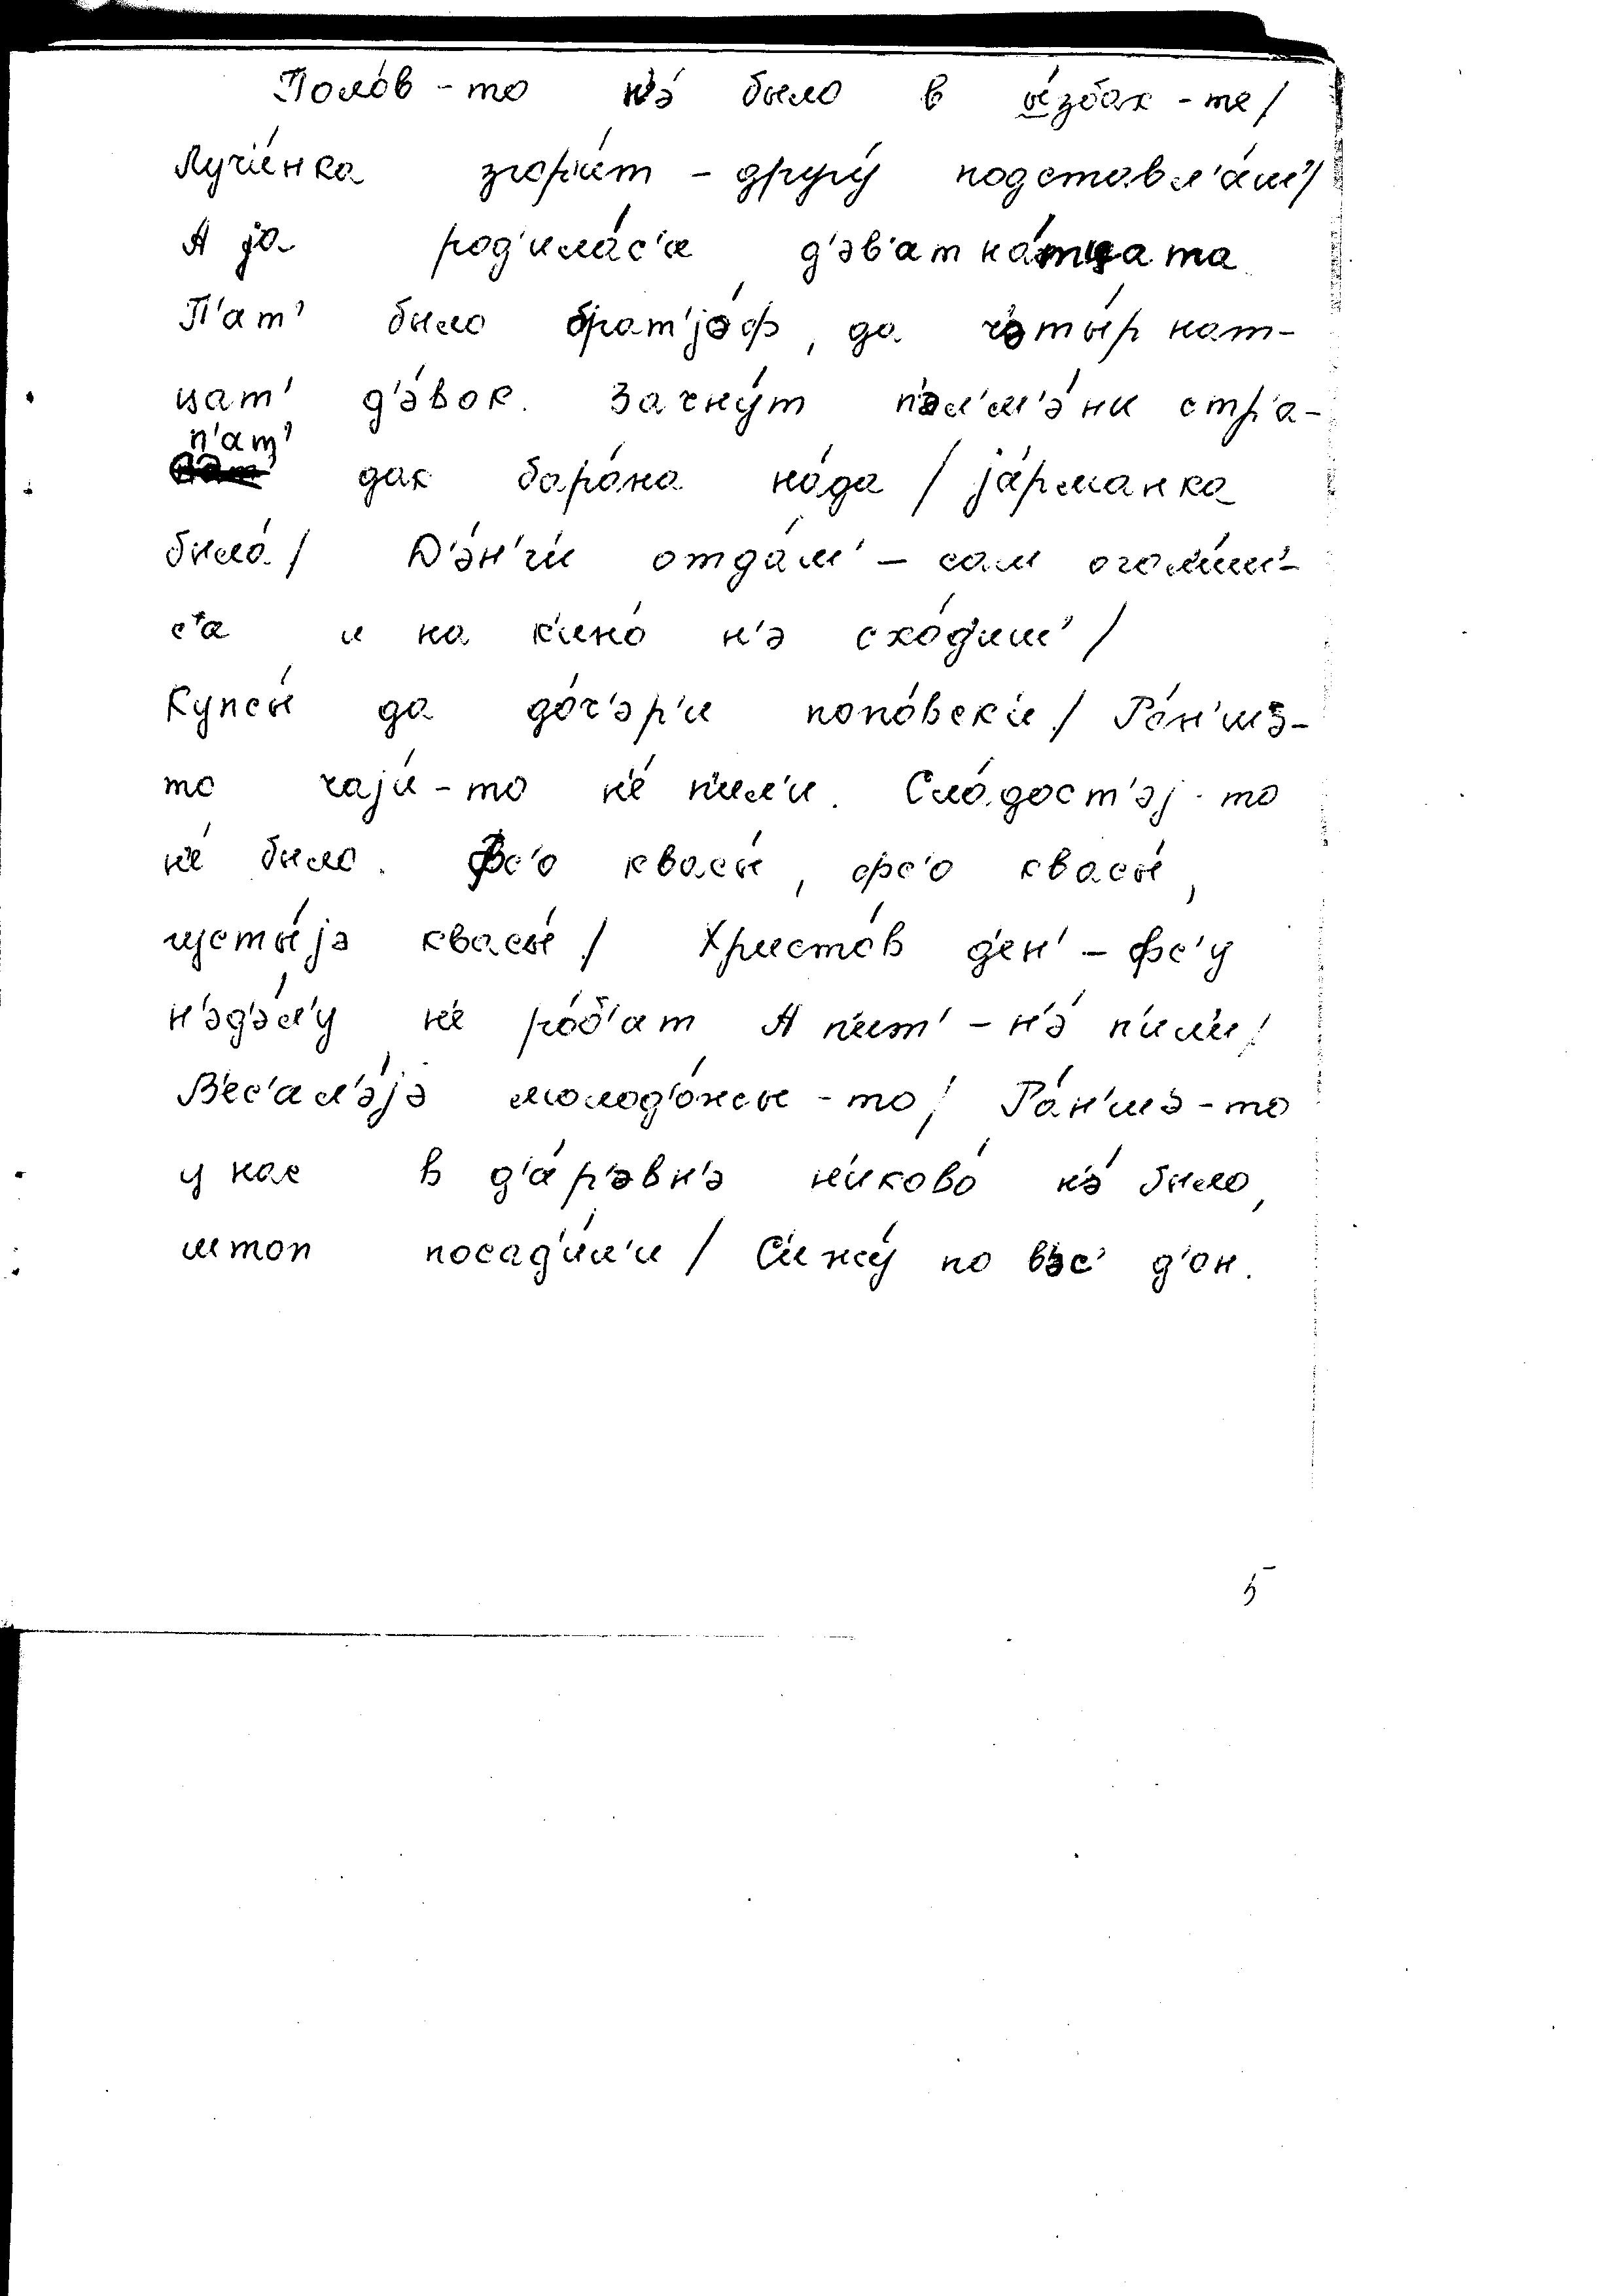 Поло́в - то н'э́ было в ы́збах - те /
Лучи́нка згори́т - другу́ подставл'а́ш' /
А ја родʼила́с'и д'эв'атна́тцата
П'ат' было брат'јо́ф, да ч'эты́рнат-
цат' д'э́вок. Зачну́т п'эл'м'э́ни стр'а-
п'ат' дак бара́на на́да / ја́рманка
была́ / Д'э́н'ги отда́ш' - сам оголи́ш'-
с'а и на кино́ н'э схо́диш' /
Купсы́ да до́ч'эр'и попо́вски / Ра́н'шэ-
то чаји́ - то не́ пил'и. Сла́дост'эј - то
не́ было. Фс'о квасы́, фс'о квасы́,
густы́јэ квасы́ / Христо́в ден' - фс'у
н'эд'э́л'у не ро́б'ат А пит' - н'э́ пили /
Вес'ал'э́јэ молод'о́жы - то / Ра́н'шэ - то
у нас в д'а́р'эвн'э никово́ н'э́ было,
штоп посад'и́л'и / Сижу́ по в'эс' д'он.
5